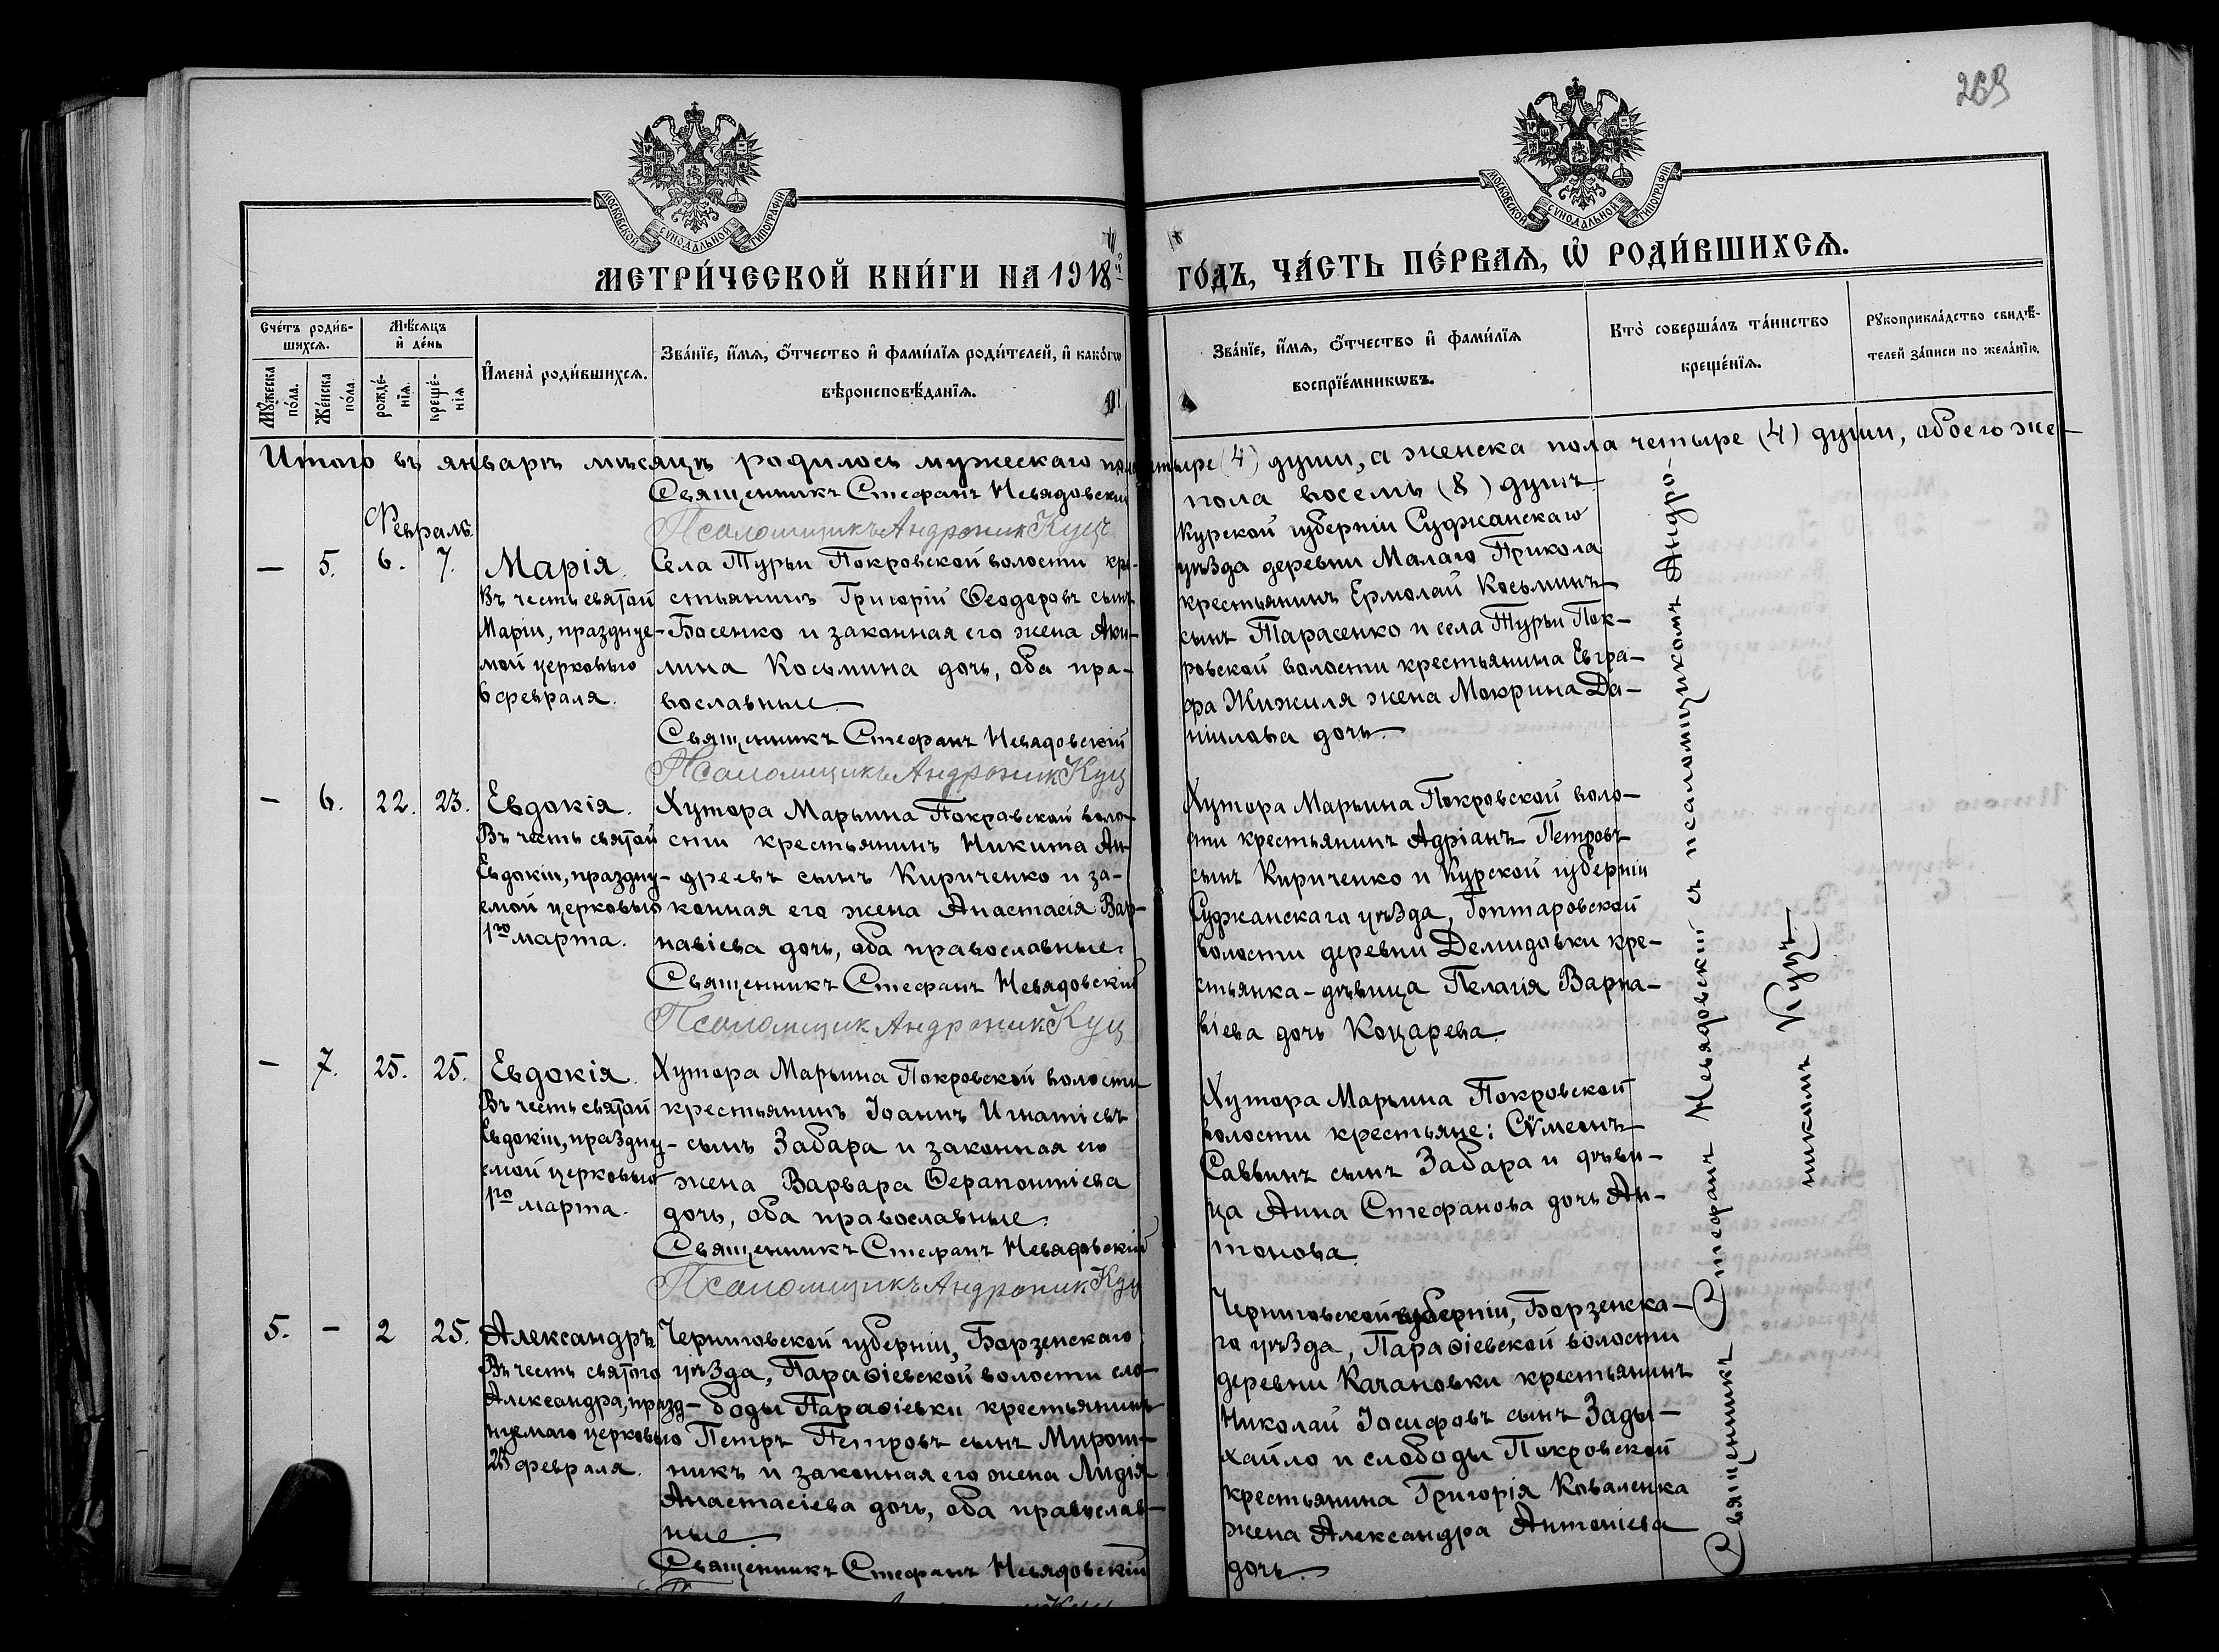 269
МОСКОВСКОЙ СѴНОДАЛЬНОЙ ТИПОГРАФІИ
МОСКОВСКОЙ СѴНОДАЛЬНОЙ ТИПОГРАФІИ
МЕТРИ́ЧЕСКОЙ КНИ́ГИ НА 1918й
ГО́ДЪ, ЧА́СТЬ ПЕ́РВАѦ, Ѡ҆ РОДИ́ВШИХСѦ.
Сче́тъ роди́в-
шихсѧ.
Мꙋ́жеска по́ла.
Же́нска по́ла.
Мѣ́сѧцъ
и҆ де́нь
рожде́-
нїѧ.
креще́-
нїѧ
И҆мена̀ роди́вшихсѧ.
Зва́нїе, и҆́мѧ, ѻ҆́тчество и҆ фами́лїѧ роди́телей, и҆ како́гѡ
вѣроисповѣ́данїѧ.
Зва́нїе, и҆́мѧ, ѻ҆́тчество и҆ фами́лїѧ
воспрїе́мникѡвъ.
Кто̀ соверша́лъ та́инство
креще́нїѧ.
Рꙋкоприкла́дство свидѣ́-
телей за́писи по жела́нїю.
Итого въ январѣ мѣсяцѣ родилось мужескаго пола четыре (4) души, а женска пола четыре (4) души, обоего же
пола восемь (8) душъ.
Священникъ Стефанъ Невядовскій
Псаломщикъ Андроникъ Куцъ
Февраль.
— 5. 6. 7.
Марія.
Въ честь святой
Маріи, праздцуе-
мой церковью
6 февраля.
Села Турьи Покровской волости кре-
стьянинъ Григорій Ѳеодоровъ сынъ
Босенко и законная его жена Аки-
лина Косьмина дочь, оба пра-
вославные
Священникъ Стефанъ Невядовскій
Псаломщикъ Андроникъ Куц
Курской губерніи Суджанскаго
уѣзда деревни Малаго Прикола
крестьянинъ Ермолай Косьминъ
сынъ Тарасенко и села Турьи Пок-
ровской волости крестьянина Евгра-
фа Жижиля жена Мокрина Да-
ніилова дочь.
— 6. 22. 23.
Евдокія.
Въ честь святой
Евдокіи, праздну-
емой церковью
1го марта.
Хутора Марьина Покровской воло-
сти крестьянинъ Никита Ан-
дреевъ сынъ Кириченко и за-
конная его жена Анастасія Вар-
навіева дочь, оба православные.
Священникъ Стефанъ Невядовскій
Псаломщик Андроник Куц
Хутора Марьина Покровской воло-
сти крестьянинъ Адріанъ Петровъ
сынъ Кириченко и Курской губерніи
Суджанскаго уѣзда, Гоптаровской
волости деревни Демидовки кре-
стьянка-дѣвица Пелагія Варна-
віева дочь Коцарева.
— 7. 25. 25.
Евдокія.
Въ честь святой
Евдокіи, праздну-
емой церковью
1го марта.
Хутора Марьина Покровской волости
крестьянинъ Іоаннъ Игнатіевъ
сынъ Забара и законная его
жена Варвара Ѳерапонтіева
дочь, оба православные.
Священникъ Стефанъ Невядовскій
Псаломщикъ Андроник Куц
Хутора Марьина Покровской
волости крестьяне: Сѵмеонъ
Саввинъ сынъ Забара и дѣви-
ца Анна Стефанова дочь Ан-
тонова.
5. — 2 25.
Александръ.
Въ честь святого
Александра, празд-
нуемаго церковью
23 февраля.
Черниговской губерніи, Борзенскаго
уѣзда, Параѳіевской волости сло-
боды Параѳіевки крестьянинъ
Петръ Петровъ сынъ Мирош-
никъ и законная его жена Лидія
Анастасіева дочь, оба православ-
ные
Священникъ Стефанъ Невядовскій
Черниговской губерніи, Борзенска-
го уѣзда, Параѳіевской волости
деревни Качановки крестьянинъ
Николай Іосифовъ сынъ Зады-
хайло и слободы Покровской
крестьянина Григорія Коваленка
жена Александра Антоніева
дочь.
Священникъ Стефанъ Невядовскій съ псаломщикомъ Андро-
никомъ Куцъ